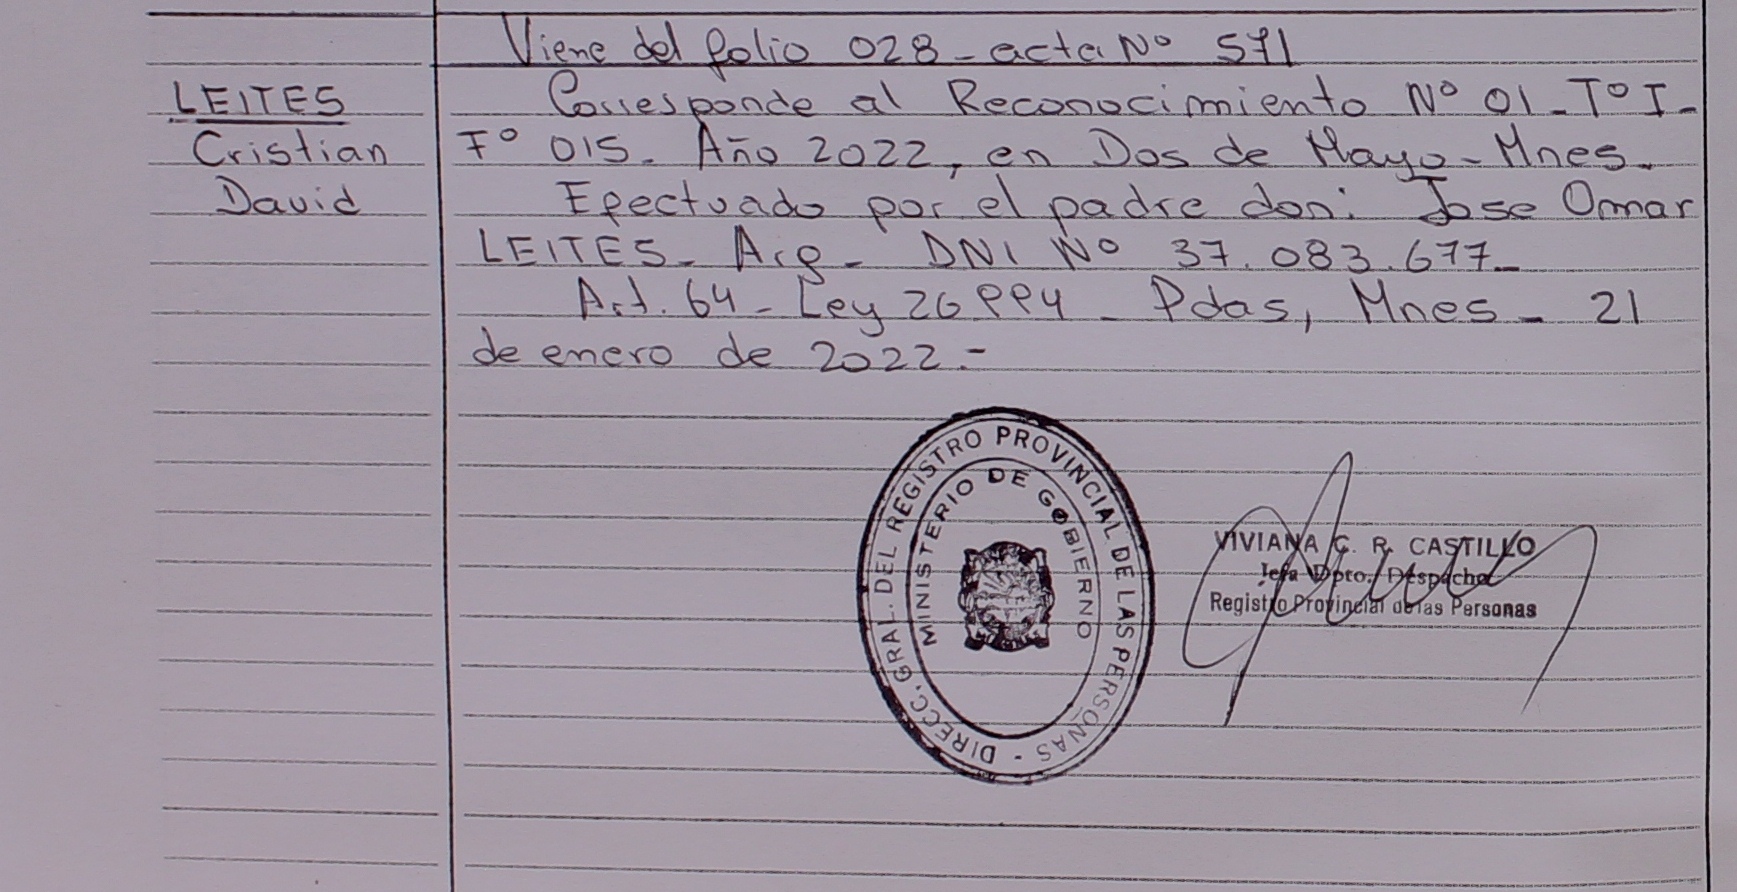 Viene del folio 028-acta Nº 571
LEITES
Cristian
David
Corresponde al Reconocimiento Nº 01-TºI-
Fº 015- Año 2022, en Dos de Mayo-Mnes-
Efectuado por el padre don: Jose Omar
LEITES- Arg- DNI Nº 37.083.677-
Art. 64- Ley 26994- Pdas, Mnes- 21
de enero de 2022.-
DIRECC. GRAL. DEL REGISTRO PROVINCIAL DE LAS PERSONAS -
MINISTERIO DE GOBIERNO
VIVIANA G. R. CASTILLO
Jefa Dpto. Despacho
Registro Provincial de las Personas